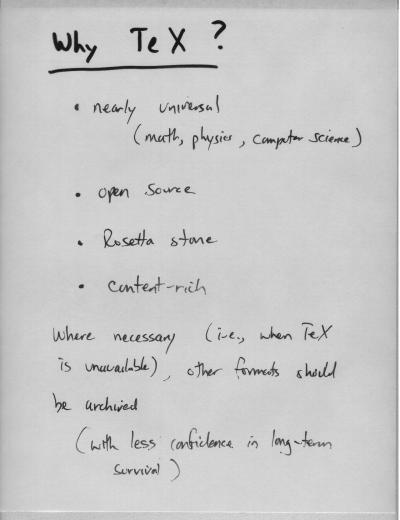 Why TeX ?
• nearly universal
(math, physics, computer science)
• open source
• Rosetta stone
• content-rich
Where necessary (i.e., when TeX
is unavailable), other formats should
be archived
(with less confidence in long-term
survival)